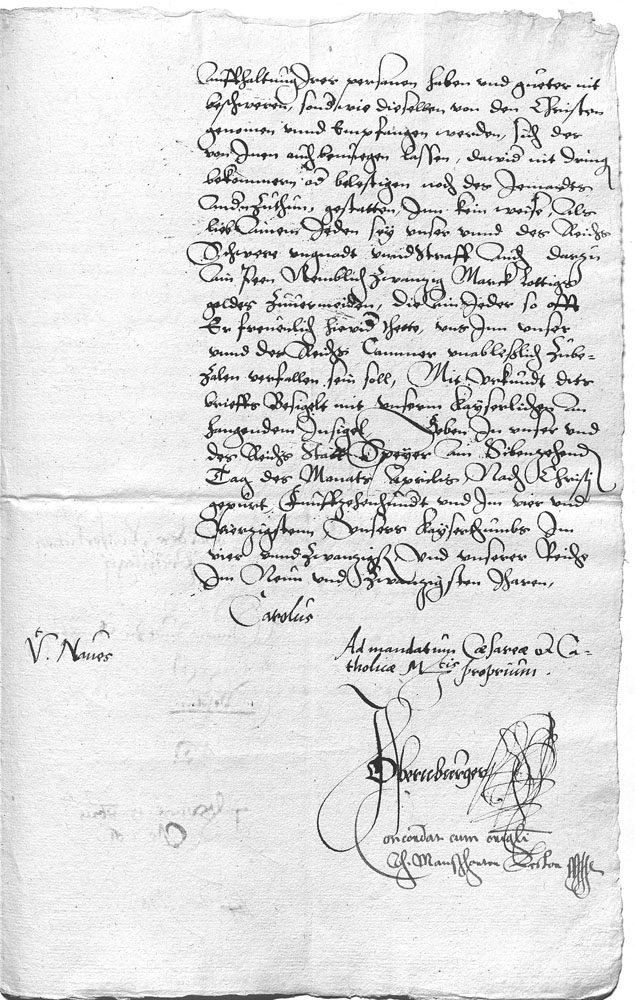 Auffhaltung Irer personen haben und gueter nit
beschweren, sond(er) wie dieselben von den Christen
genomen unnd Empfangen werden, sich der
von Inen auch benuegen lassen, dawid(er) nit dring(en)
bekommern od(er) belestigen noch des Jemandts
Andn zuthun, gestatten, Inn kein weise, Als
lieb Ainem Jeden sey unser unnd des Reichs
Schwere ungnadt unnd Straff Auch darzu
Ain Peen Nemblich Zwanzig Marck lottigs
goldes Zuuermeiden, die ain Jeder so offt
Er freuenlich hiewid(er) thette, uns Inn unser
unnd des Reichs Cammer unableßlich Zube-
zalen verfallen sein soll, Mit Urkundt diss
brieffs Besigelt mit unserm Kayserlichen an
hangendem Insigel Geben In unser und
des Reichs Statt Speyer am Sibenzehend
Tag des Monats Aprilis Nach Christi
gepurt, Funffzehenhundt und Im vier und
Vierzigstem, Unsers Kayserthumbs Im
vier unnd Zwanzigst(en) Und unserer Reich
Im Neun und Zwanzigsten Jharen,
Carolus
V. Naves
Ad mandatum Cæsareæ et Ca-
tholicæ M(aies)tis proprium.
Obernburger
Concordat cum origli